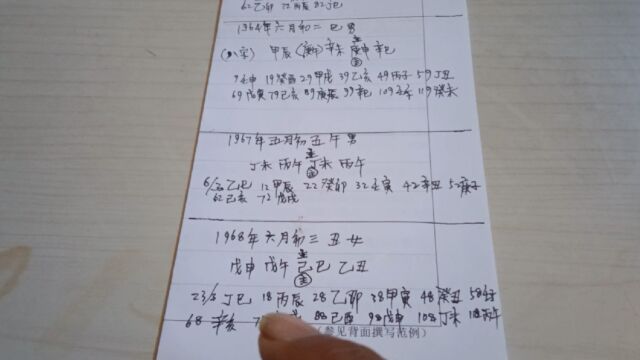 62乙卯 72丙辰 82丁巳
1964年六月初二 巳 男
(八字) 甲辰 辛未 庚申 辛巳
9壬申 19癸酉 29甲戌 39乙亥 49丙子 59丁丑
69戊寅 79己亥 89庚辰 99辛巳 109壬午 119癸未
1967年五月初五 午 男
丁未 丙午 丁未 丙午
6/ 乙巳 12甲辰 22癸卯 32壬寅 42辛丑 52庚子
62己亥 72戊戌
1968年六月初三 丑 女
戊申 戊午 己巳 乙丑
丁巳 18丙辰 28乙卯 38甲寅 48癸丑 58壬子
68辛亥 88己酉 98戊申 108丁未 118丙午
(参见背面撰写范例)